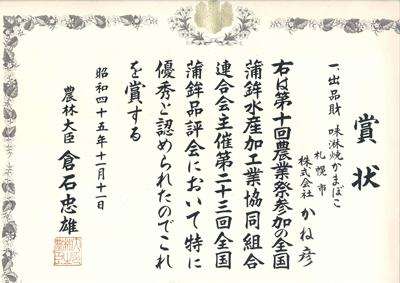 賞状
一、出品財 味淋焼かまぼこ
札幌市
株式会社 かね彦
右は第十回農業祭参加の全国
蒲鉾水産加工業協同組合
連合会主催第二十三回全国
蒲鉾品評会において特に
優秀と認められたのでこれ
を賞する
昭和四十五年十一月十一日
農林大臣 倉石忠雄